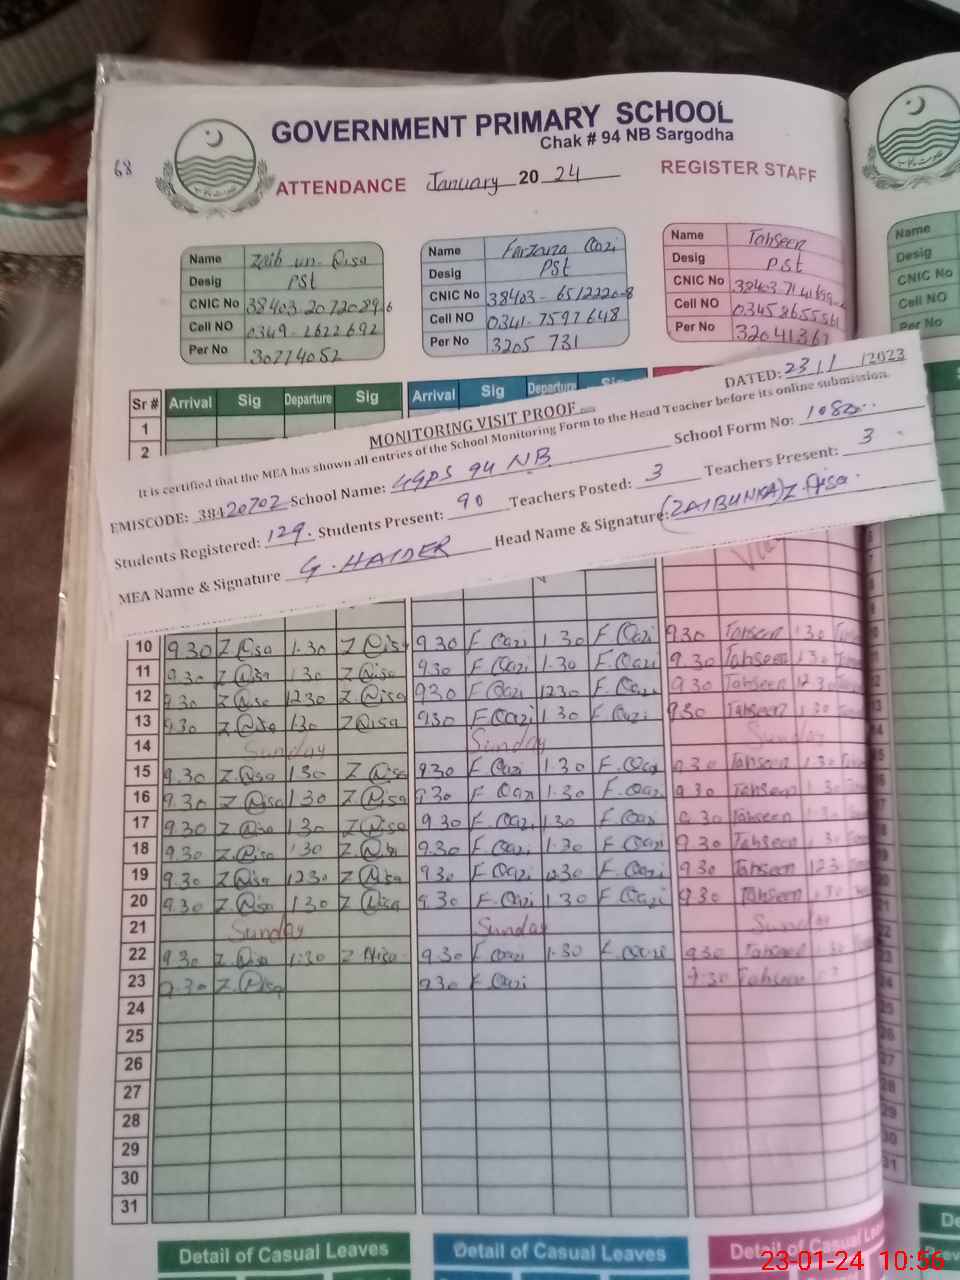 GOVERNMENT PRIMARY SCHOOL
Chak # 94 NB Sargodha
68
ATTENDANCE January 20 24 REGISTER STAFF
Name Zaib un-Nisa
Desig PST
CNIC No 38403 2072089 6
Cell NO 0349-1622692
Per No 30774052
Name Farzana Qazi
Desig PST
CNIC No 38403-6512220-8
Cell NO 0341-7597648
Per No 3205 731
Name Tahseen
Desig PST
CNIC No
Cell NO 03458655561
Per No 32041367
Name
Desig
CNIC No
Cell NO
Per No
Sr # Arrival Sig Departure Sig Arrival Sig Departure Sig
1
2
MONITORING VISIT PROOF DATED: 23/1/2023
It is certified that the MEA has shown all entries of the School Monitoring Form to the Head Teacher before its online submission.
EMISCODE: 38420702 School Name: GGPS 94 NB School Form No:
Students Registered: 129. Students Present: 90 Teachers Posted: 3 Teachers Present: 3
MEA Name & Signature G. HAIDER Head Name & Signature: (ZAIBUNISA) Z.Nisa.
10 9.30 Z.Nisa 1.30 Z Nisa 9.30 F Qazi 1.30 F Qazi 9.30 Tahseen 1.30
11 9.30 Z Nisa 1.30 Z Nisa 9.30 F Qazi 1.30 F Qazi 9.30 Tahseen 1.30
12 9.30 Z Nisa 12.30 Z Nisa 9.30 F Qazi 12.30 F. Qazi 9.30 Tahseen 12.30
13 9.30 Z Nisa 1.30 Z Nisa 9.30 F Qazi 1.30 F Qazi 9.30 Tahseen 1.30
14 Sunday Sunday Sunday
15 9.30 Z.Nisa 1.30 Z Nisa 9.30 F Qazi 1.30 F. Qazi 9.30 Tahseen 1.30
16 9.30 Z Nisa 1.30 Z Nisa 9.30 F Qazi 1.30 F. Qazi 9.30 Tahseen 1.30
17 9.30 Z Nisa 1.30 Z Nisa 9.30 F Qazi 1.30 F Qazi 9.30 Tahseen
18 9.30 Z.Nisa 1.30 Z.Nisa 9.30 F Qazi 1.30 F Qazi 9.30 Tahseen 1.30
19 9.30 Z Nisa 12.30 Z Nisa 9.30 F Qazi 12.30 F. Qazi 9.30 Tahseen 12.30
20 9.30 Z Nisa 1.30 Z Nisa 9.30 F. Qazi 1.30 F Qazi 9.30 Tahseen 1.30
21 Sunday Sunday Sunday
22 9.30 Z Nisa 1:30 Z Nisa 9.30 F Qazi 1.30 F. Qazi 9.30 Tahseen 1.30
23 9.30 Z.Nisa 9.30 F Qazi 9.30 Tahseen
24
25
26
27
28
29
30
31
Detail of Casual Leaves Detail of Casual Leaves Detail of Casual
23-01-24 10:56